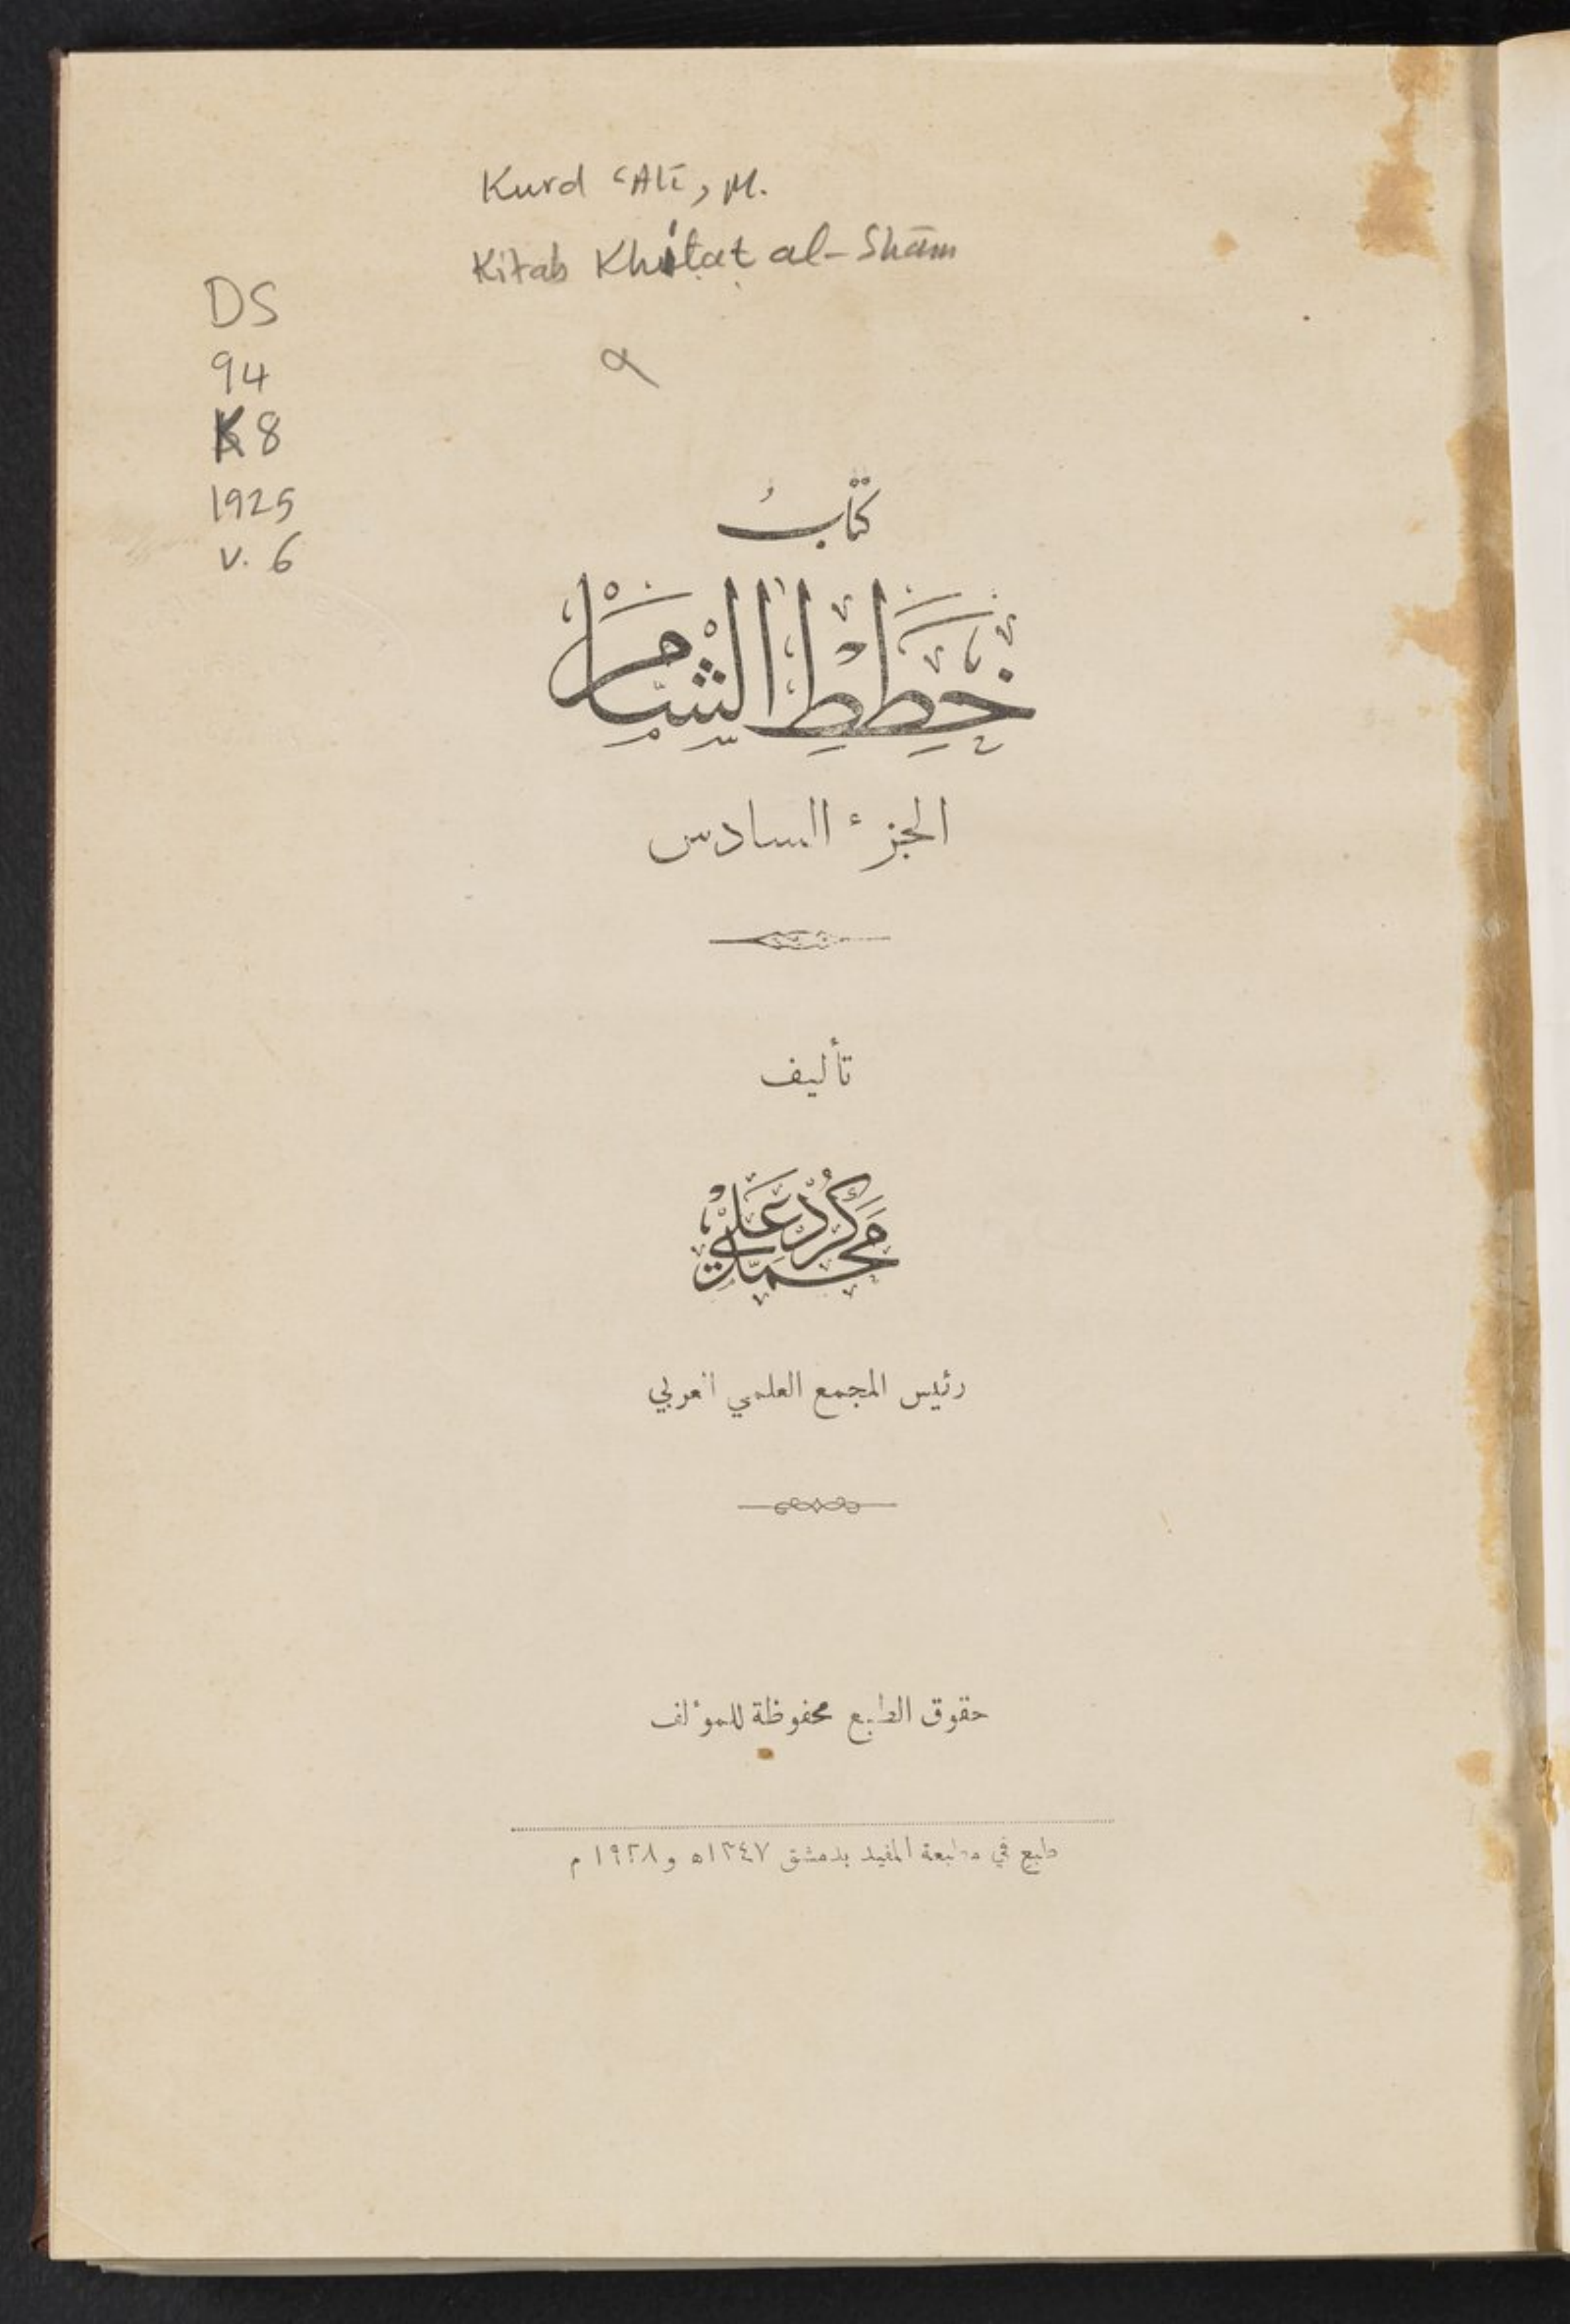 Kurd ʿAlī, M.
Kitab Khiṭaṭ al-Shām
DS
94
K8
1925
v. 6
كتاب
خطط الشام
الجزء السادس
تأليف
محمد كرد علي
رئيس المجمع العلمي العربي
حقوق الطبع محفوظة للمؤلف
طبع في مطبعة المفيد بدمشق ١٣٤٧ه و ١٩٢٨ م